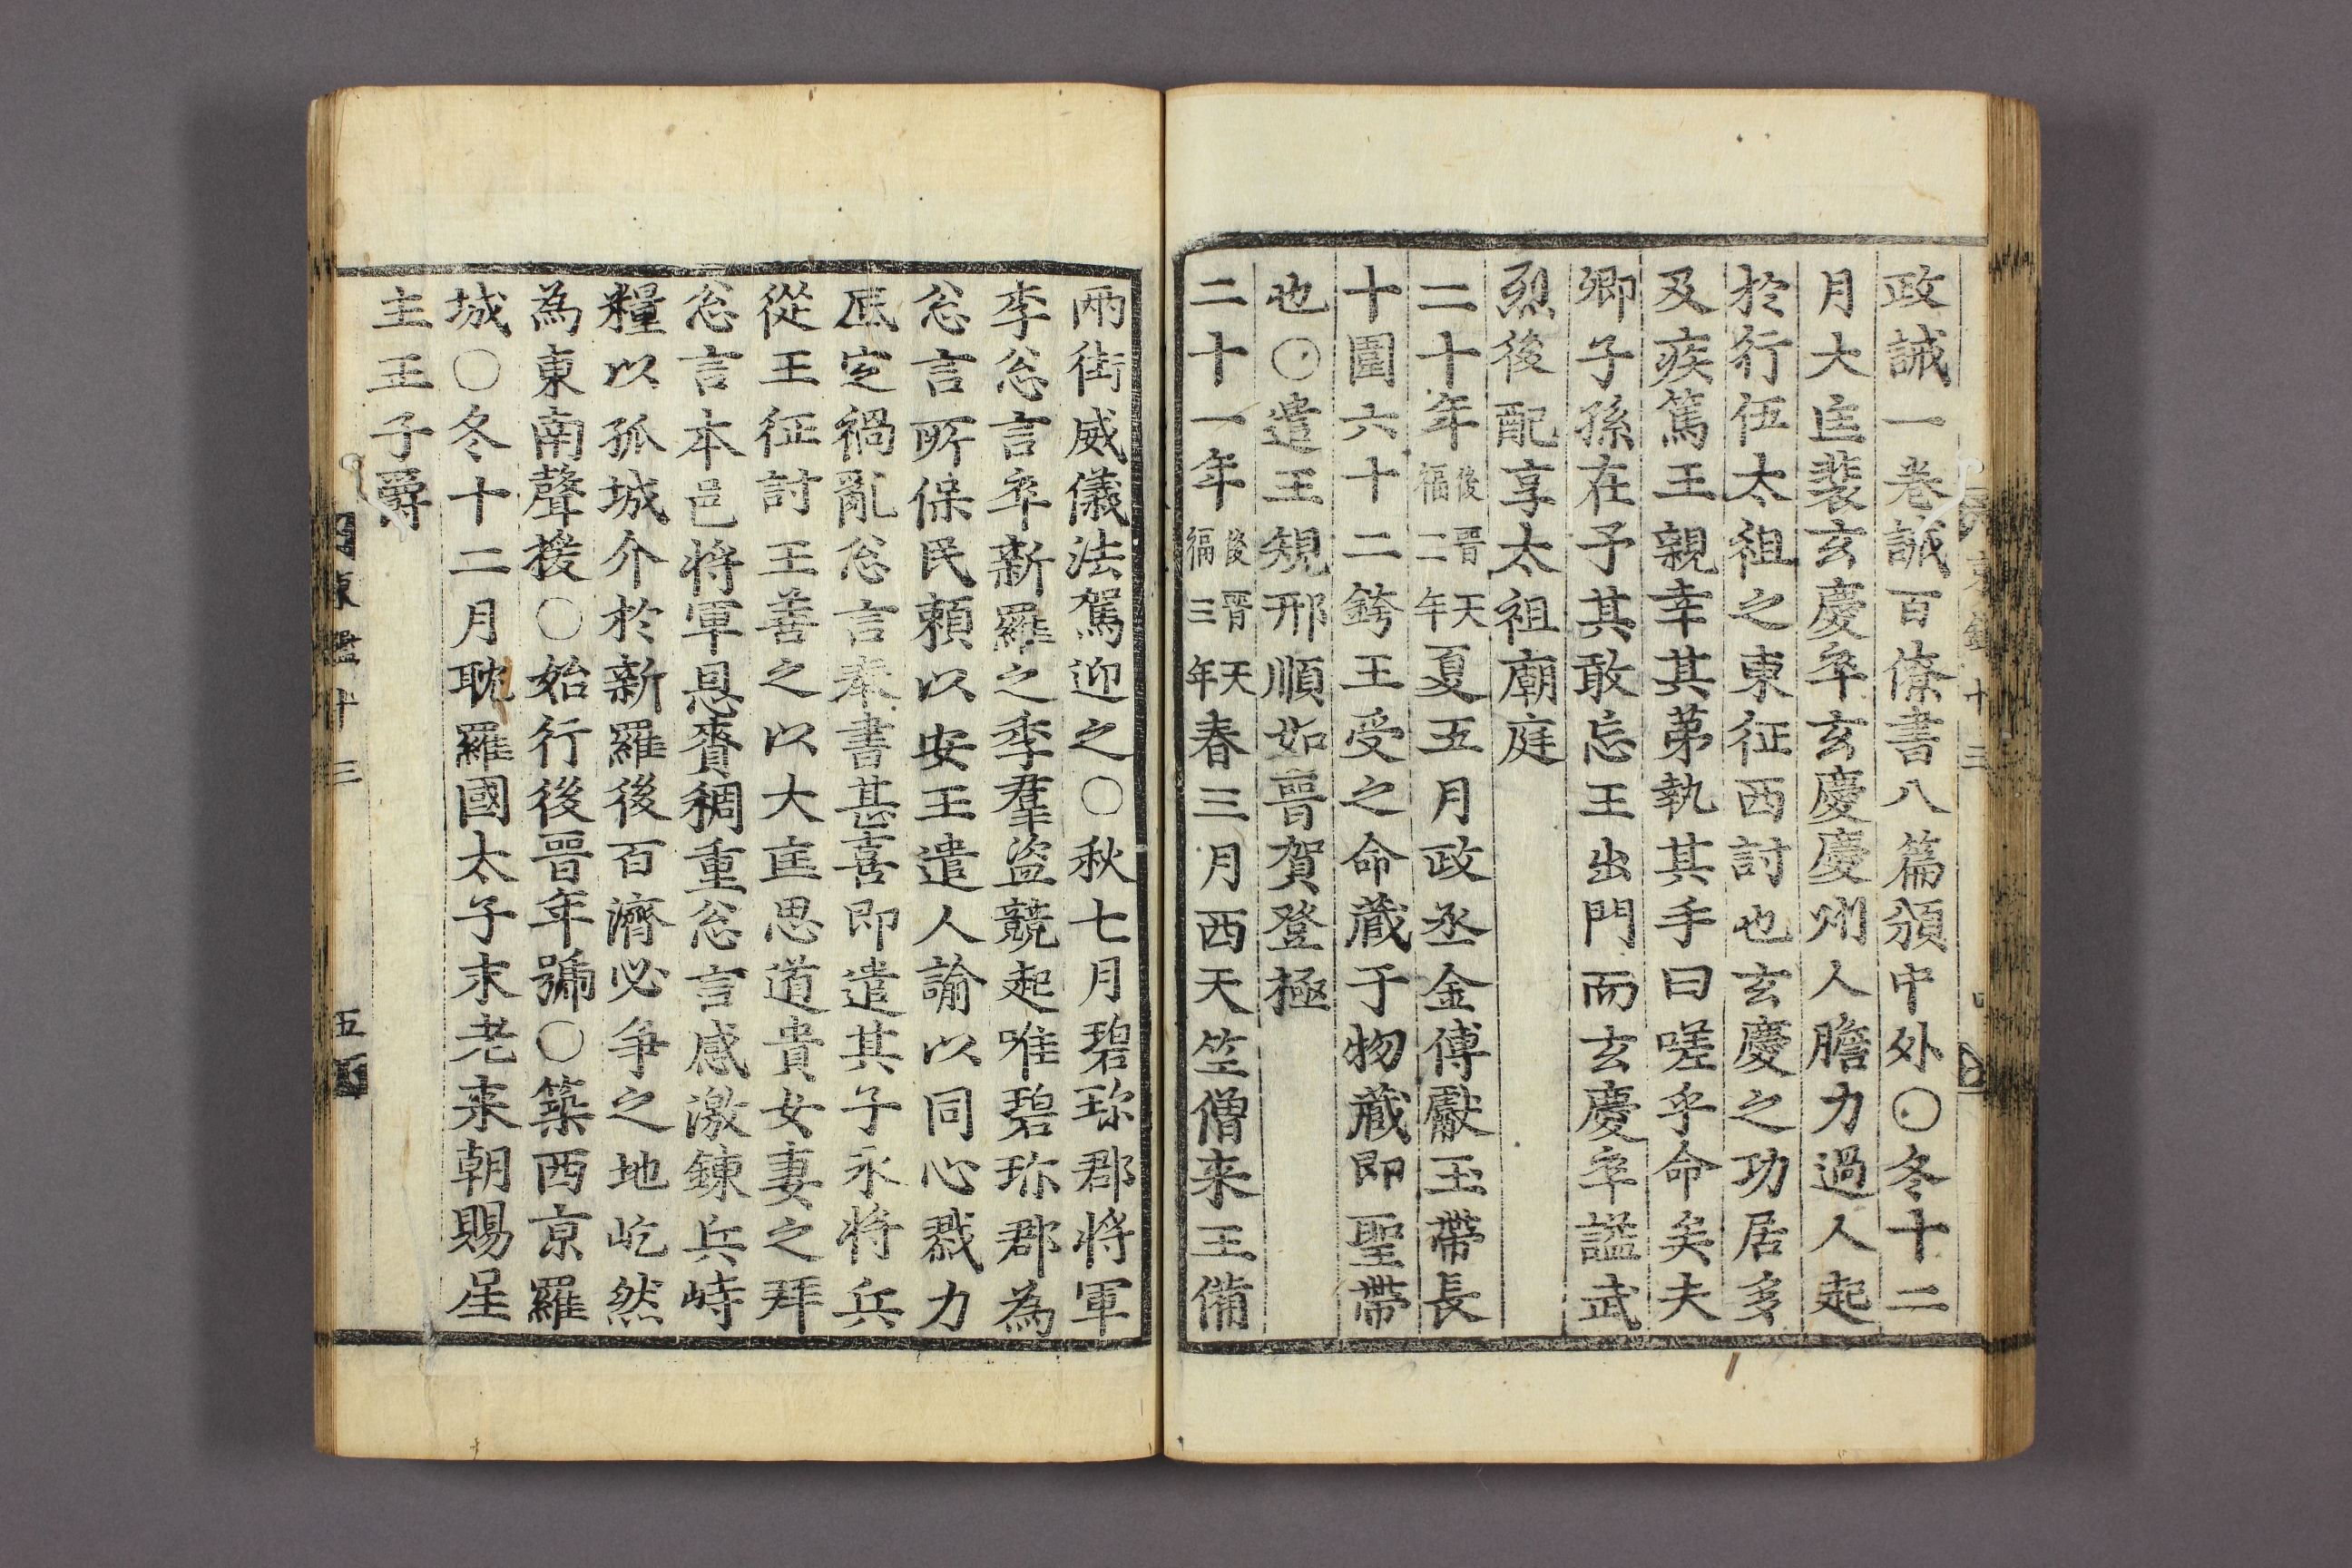 政誡一卷誡百僚書八篇頒中外○冬十二
月大匡裴玄慶卒玄慶慶州人膽力過人起
於行伍太祖之東征西討也玄慶之功居多
及疾篤王親幸其第執其手曰嗟乎命矣夫
卿子孫在予其敢忘王出門而玄慶卒謚武
烈後配享太祖廟庭
二十年後晋天福二年夏五月政丞金傅獻玉帶長
十圍六十二銙王受之命藏于物藏即聖帶
也○遣王規邢順如晉賀登極
二十一年後晋天福三年春三月西天竺僧来王備
兩街威儀法駕迎之○秋七月碧珎郡將軍
李忩言卒新羅之季羣盜競起唯碧珎郡為
忩言所保民賴以安王遣人諭以同心戮力
底定禍亂忩言奉書甚喜即遣其子永將兵
從王征討王善之以大匡思道貴女妻之拜
忩言本邑将軍恩賚稠重忩言感激鍊兵峙
糧以孤城介於新羅後百濟必争之地屹然
為東南聲援○始行後晉年號○築西京羅
城○冬十二月耽羅國太子末老来朝賜星
主王子爵
東鑑十三
五